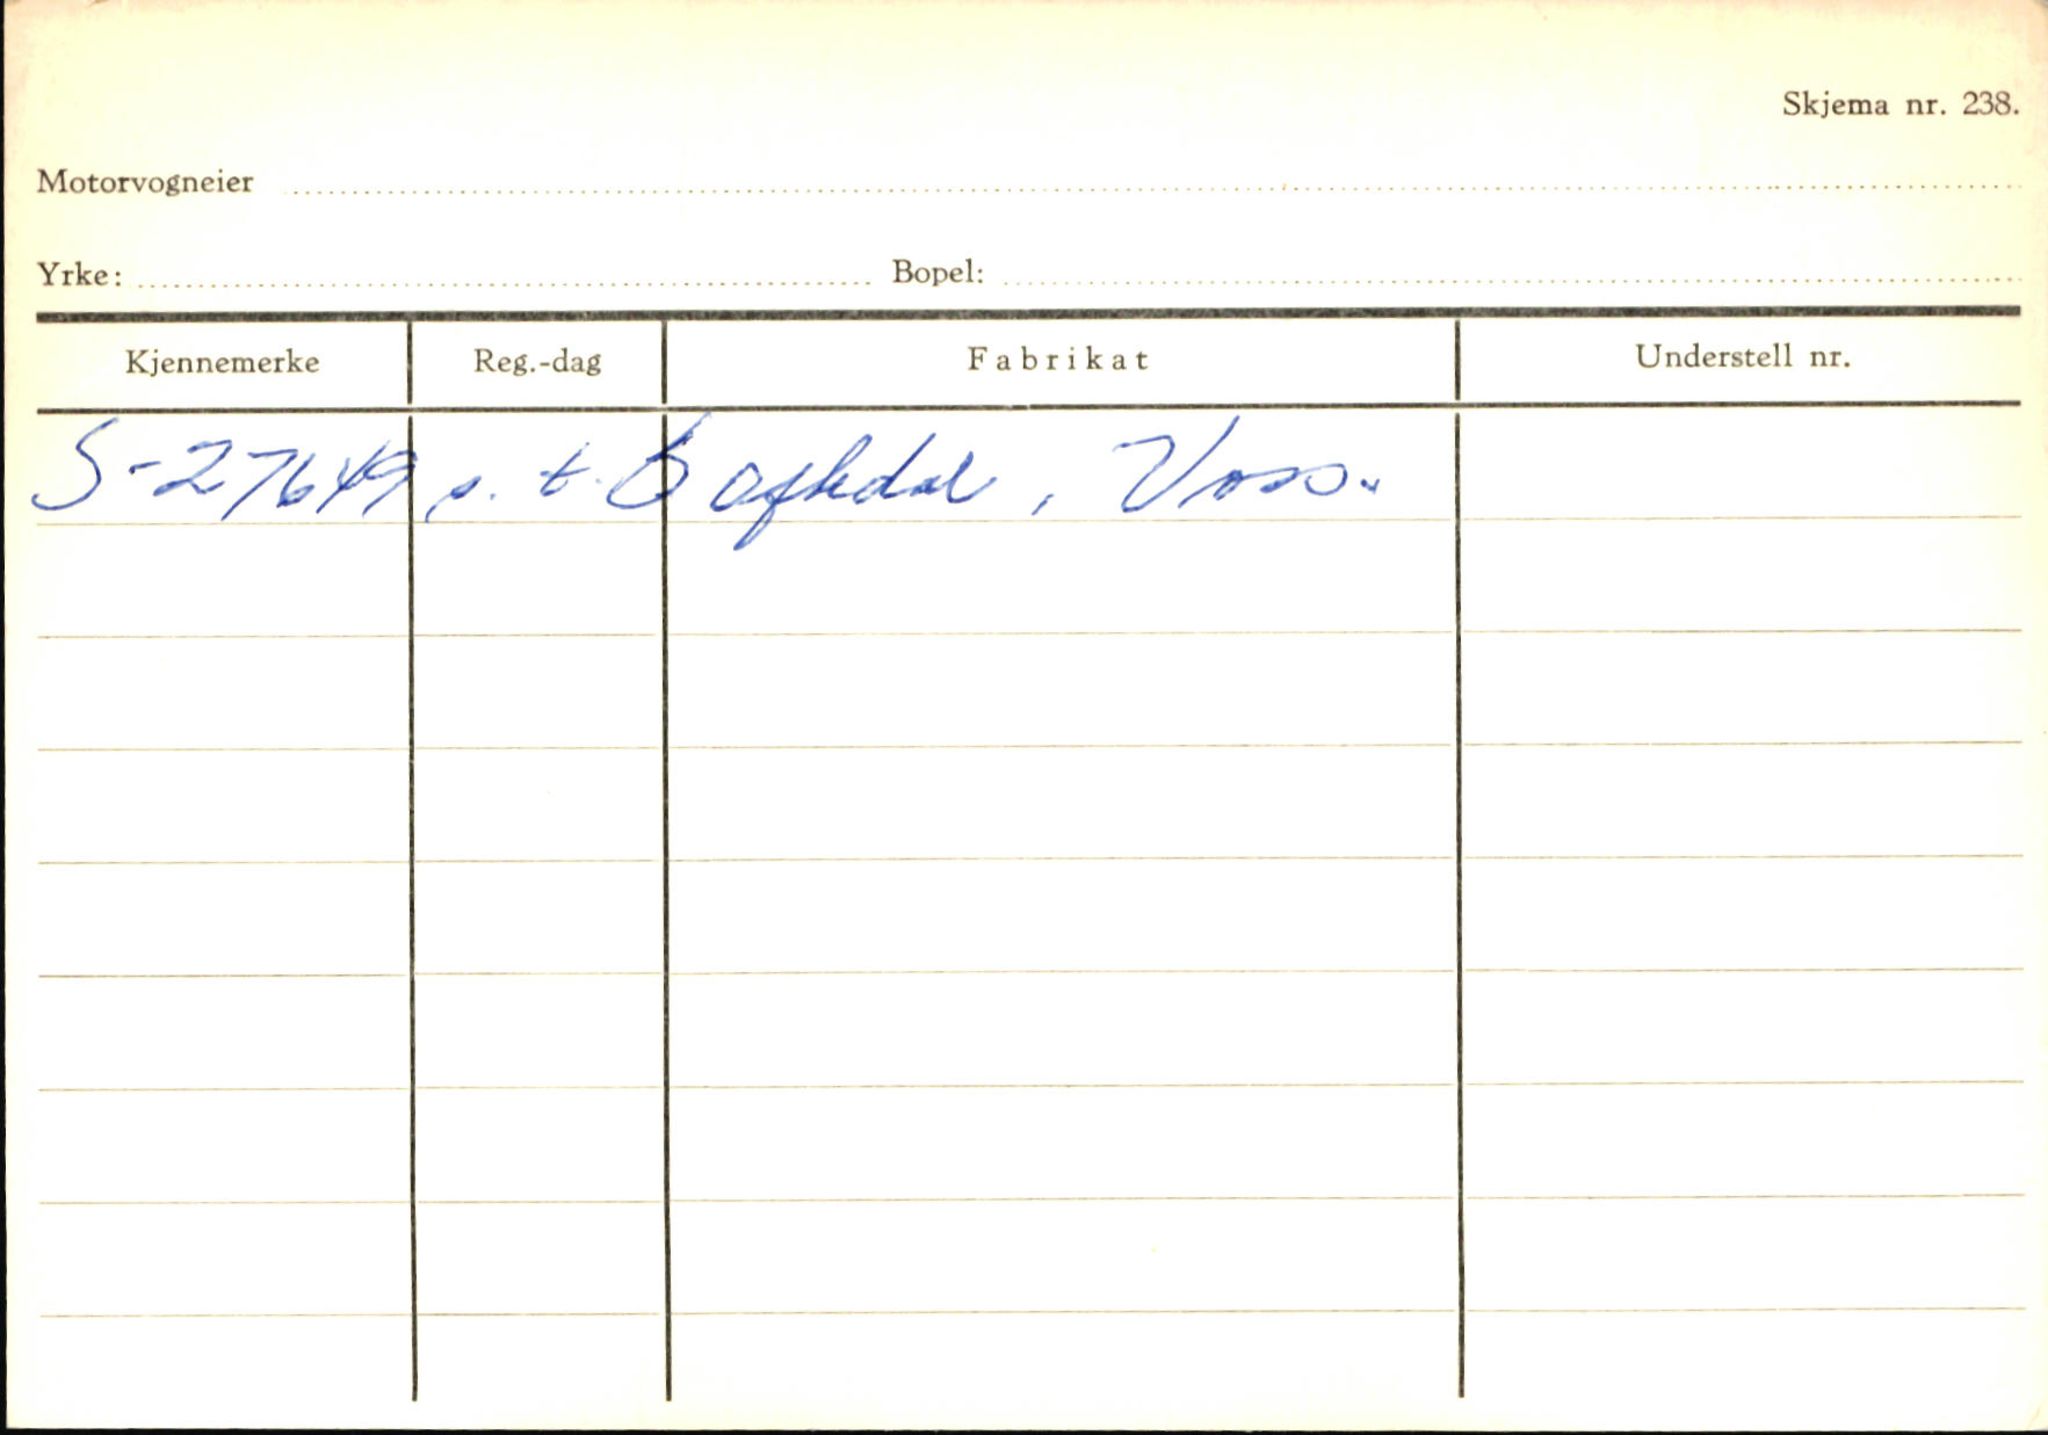 Skjema nr. 238.
Motorvogneier
Yrke: Bopel:
Kjennemerke Reg.-dag Fabrikat Understell nr.
S-27649, s. t. , Voss.